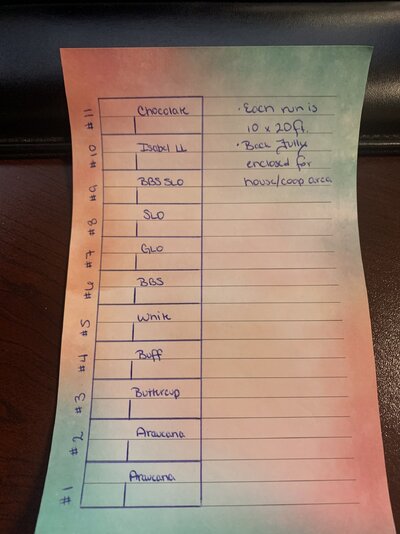 #11 Chocolate
#10 Isabel LL
#9 BBS SLO
#8 SLO
#7 GLO
#6 BBS
#5 White
#4 Buff
#3 Buttercup
#2 Araucana
#1 Araucana
· Each run is
10 x 20ft.
· Back fully
enclosed for
house/coop area